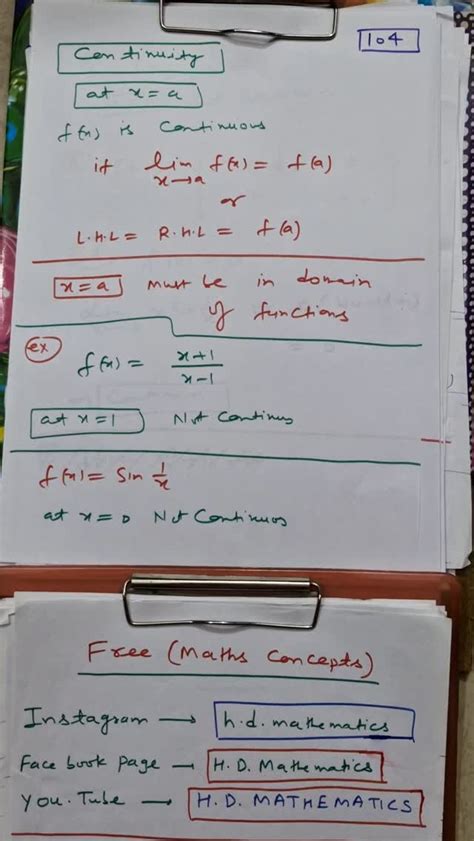 104
Continuity
at x = a
f(x) is continuous
if lim f(x) = f(a)
x→a
or
L.H.L = R.H.L = f(a)
x = a must be in domain
of functions
ex
f(x) = x+1
x-1
at x = 1 Not Continus
f(x) = Sin 1/x
at x = 0 Not Continuos
Free (Maths Concepts)
Instagram → h.d.mathematics
Face book page → H.D. Mathematics
You.Tube → H.D. MATHEMATICS